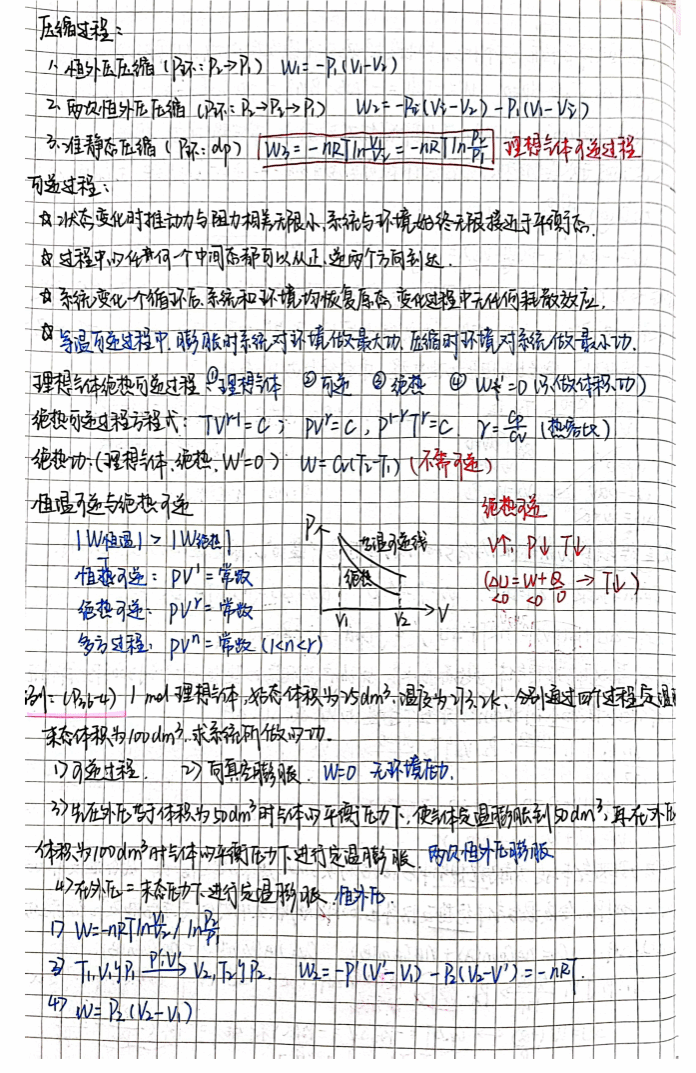 压缩过程：
1、恒外压压缩（P环：P₂→P₁） W₁=-P₁(V₁-V₂)
2、两次恒外压压缩（P环：P₂→P₂'→P₁） W₂=-P₂'(V₂'-V₂)-P₁(V₁-V₂')
3、准静态压缩（P环：dp） W₃=-nRTln V₁/V₂=-nRTln P₂/P₁ 理想气体可逆过程
可逆过程：
☆ 状态变化时推动力与阻力相差无限小，系统与环境始终无限接近于平衡态.
☆ 过程中的任何一个中间态都可以从正、逆两个方向到达.
☆ 系统变化一个循环后，系统和环境均恢复原态，变化过程中无任何耗散效应.
☆ 等温可逆过程中，膨胀时系统对环境做最大功，压缩时环境对系统做最小功.
理想气体绝热可逆过程 ①理想气体 ②可逆 ③绝热 ④ W'=0（只做体积功）
绝热可逆过程方程式：TVʳ⁻¹=C； PVʳ=C，P¹⁻ʳTʳ=C， r=Cp/Cv（热容比）
绝热功：（理想气体，绝热，W'=0） W=Cv(T₂-T₁)（不需可逆）
恒温可逆与绝热可逆
|W恒温|>|W绝热|
恒T可逆：PV¹=常数
绝热可逆：PVʳ=常数
多方过程：PVⁿ=常数（1<n<r）
P
恒温可逆线
绝热
V₁ V₂ V
绝热可逆
V↑ P↓ T↓
(ΔU=W+Q → T↓)
<0 <0 0
例：（P36-4）1 mol理想气体，始态体积为25dm³，温度为273.2k，分别通过四个过程定温
末态体积为100dm³，求系统所做的功.
1）可逆过程. 2）向真空膨胀. W=0 无环境压力.
3）先在外压等于体积为50dm³时气体的平衡压力下，使气体定温膨胀到50dm³，再在外压
体积为100dm³时气体的平衡压力下进行定温膨胀. 两次恒外压膨胀
4）在外压=末态压力下进行定温膨胀. 恒外压.
1） W=-nRTln V₁/V₂ / ln P₂/P₁
3） T₁,V₁,P₁ P',V'→ V₂,T₂,P₂. W₂=-P'(V'-V₁)-P₂(V₂-V')=-nRT.
4） W=P₂(V₂-V₁)